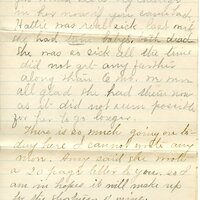 in her move if you could read
Hattie was real sick last night
She had two babys, both dead
She was so sick all the time
did not get any farther
along than 6 mo. we were
all glad she had them now
as it did not seem possible
for her to go longer.
There is so much going on to-
day here I cannot write any
more. Amy said she wrote
a 20 page letter to you so I
am in hopes it will make up
for the shortness of mine